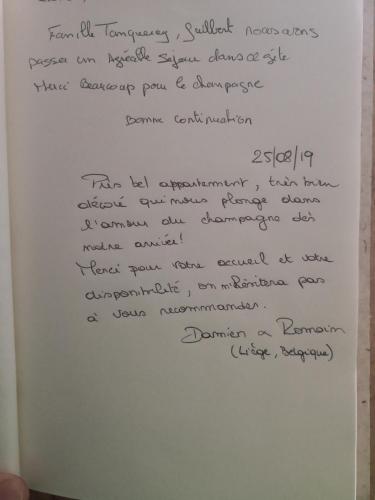 Famille Tanquerey, Guilbert nous avons
passer un Agréable séjour dans ce gîte
Merci Beaucoup pour le champagne
Bonne continuation
25/08/19
Très bel appartement, très bien
décoré qui nous plonge dans
l'amour du champagne dès
notre arrivée!
Merci pour votre accueil et votre
disponibilité, on n'hésitera pas
à vous recommander.
Damien & Romain
(Liège, Belgique)